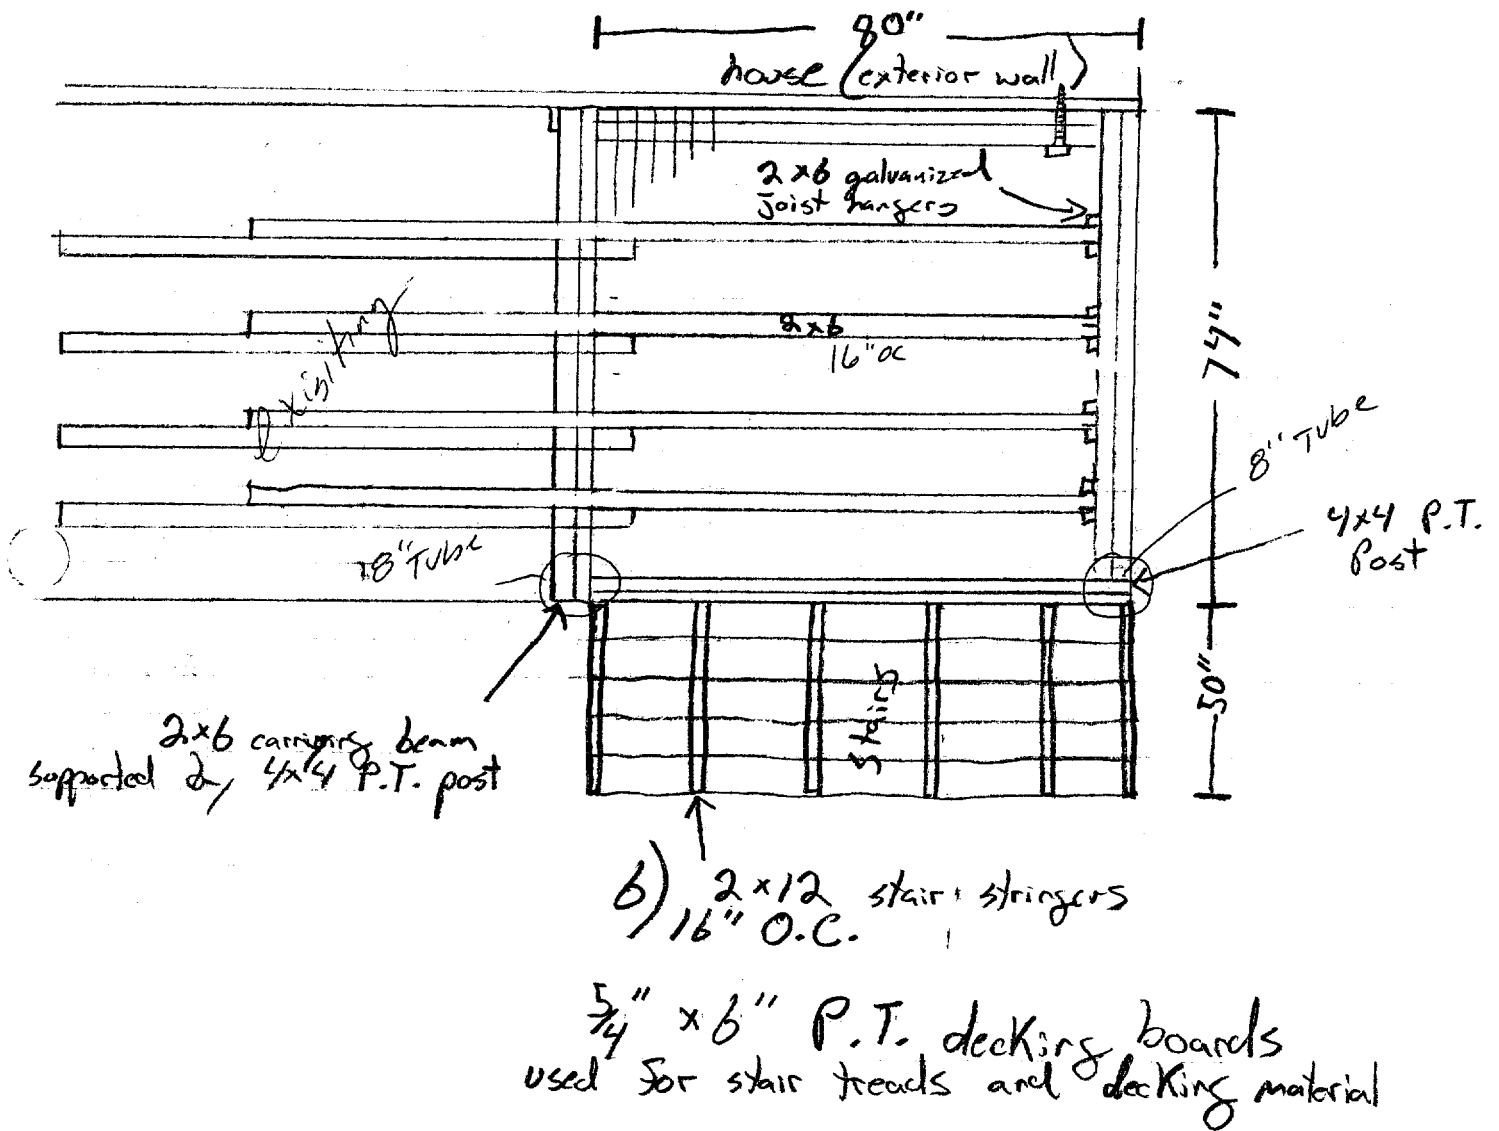 80"
house (exterior wall)
2x6 galvanized
joist hangers
2x6
16" OC
existing
74"
8" Tube
4x4 P.T.
Post
8" Tube
50"
Stairs
2x6 carrying beam
supported 2, 4x4 P.T. post
6) 2x12 stair stringers
16" O.C.
5/4" x 6" P.T. decking boards
used for stair treads and decking material